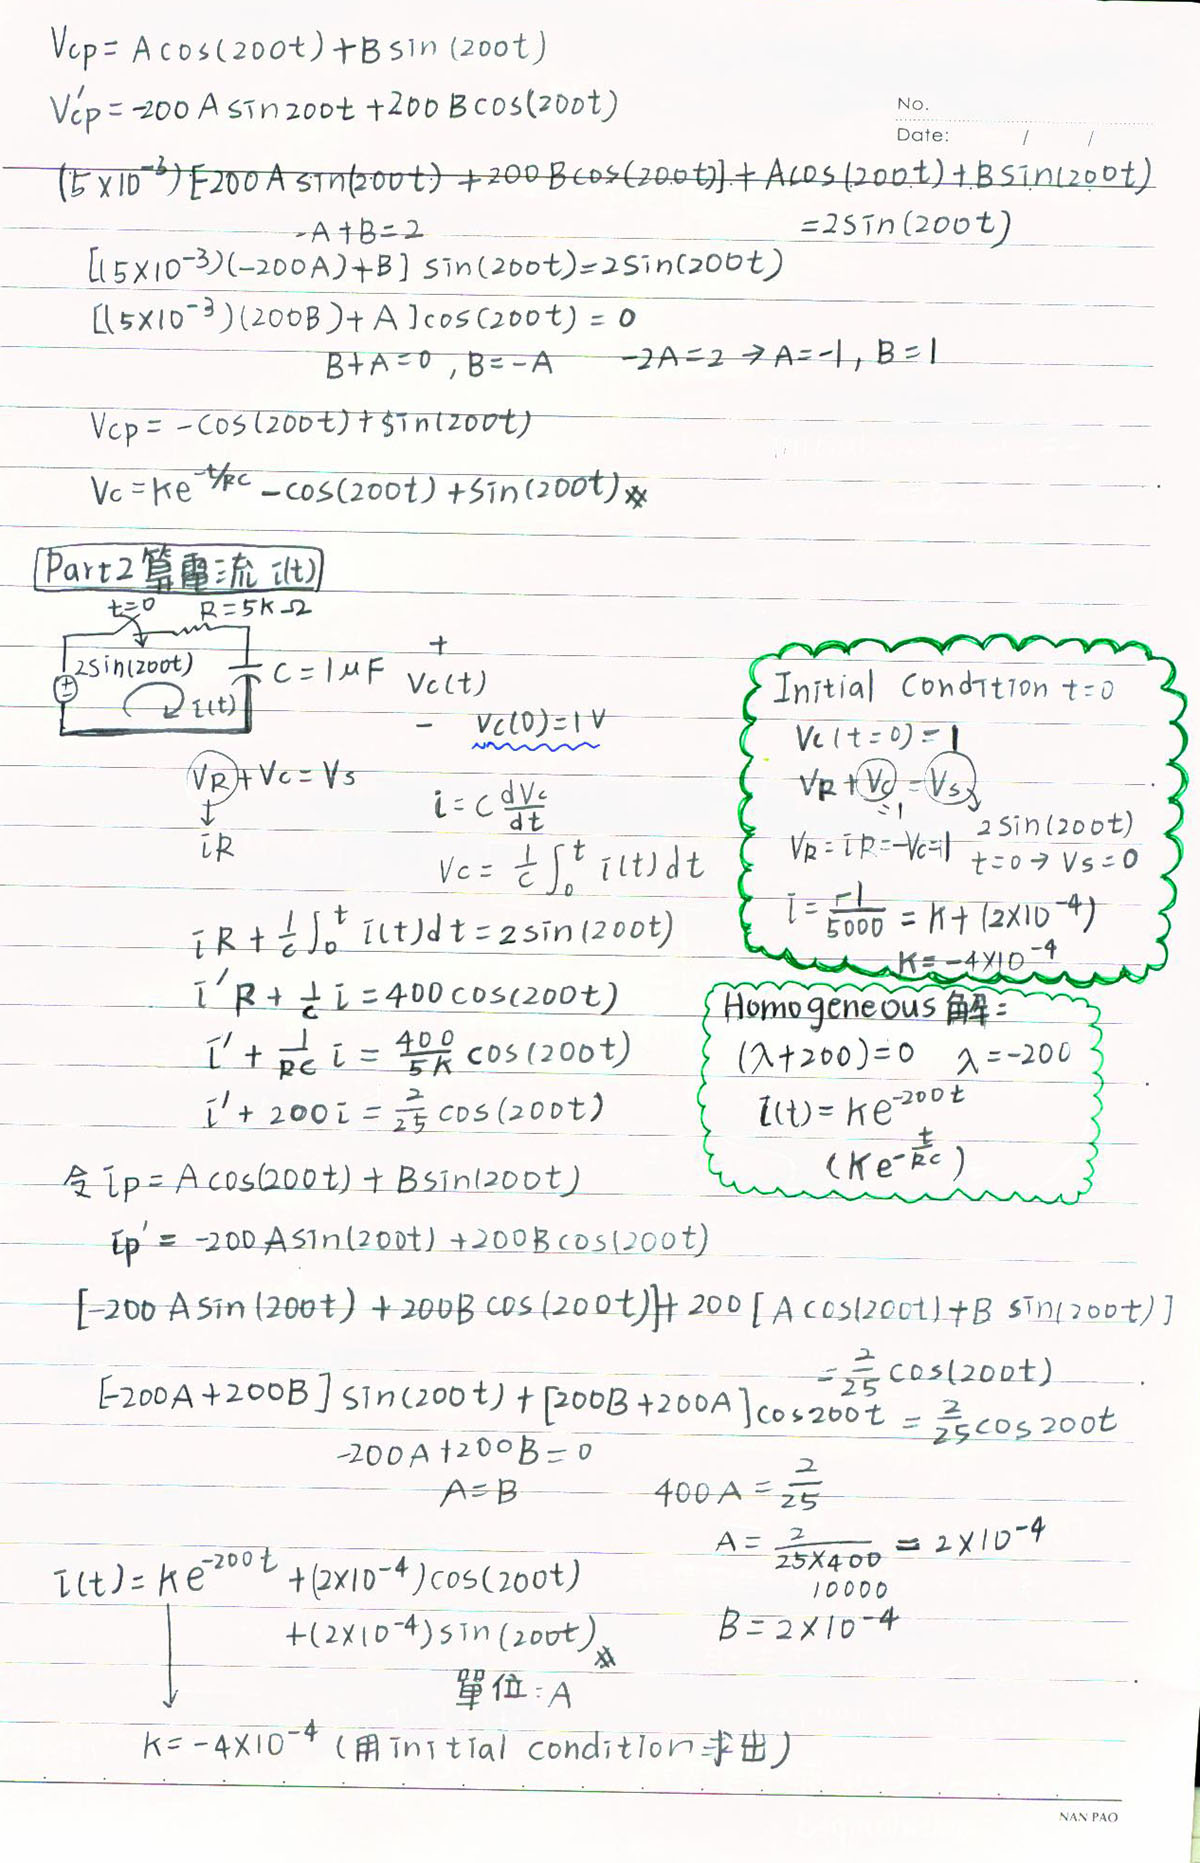 Vcp = A cos(200t) + B sin(200t)
V'cp = -200 A sin200t + 200 B cos(200t)
No.
Date: / /
(5×10^-3) [-200 A sin(200t) + 200 B cos(200t)] + A cos(200t) + B sin(200t)
= 2 sin(200t)
-A+B=2
[(5×10^-3)(-200A)+B] sin(200t) = 2 sin(200t)
[(5×10^-3)(200B)+A] cos(200t) = 0
B+A=0, B=-A -2A=2 → A=-1, B=1
Vcp = -cos(200t) + sin(200t)
Vc = Ke^-t/RC - cos(200t) + sin(200t)
Part2 算電流 i(t)
t=0 R=5KΩ
2sin(200t)
C=1μF
i(t)
+
Vc(t)
-
Vc(0)=1V
VR + Vc = Vs
↓
iR
i = C dVc/dt
Vc = 1/C ∫0^t i(t)dt
iR + 1/C ∫0^t i(t)dt = 2sin(200t)
i'R + 1/C i = 400 cos(200t)
i' + 1/RC i = 400/5K cos(200t)
i' + 200i = 2/25 cos(200t)
Initial Condition t=0
Vc(t=0)=1
VR + Vc = Vs
=1
2sin(200t)
VR = iR = -Vc = -1
t=0 → Vs=0
i = -1/5000 = K + (2×10^-4)
K = -4×10^-4
Homogeneous 解:
(λ+200)=0 λ=-200
i(t) = Ke^-200t
(Ke^-t/RC)
令 ip = A cos(200t) + B sin(200t)
ip' = -200 A sin(200t) + 200B cos(200t)
[-200 A sin(200t) + 200B cos(200t)] + 200 [A cos(200t) + B sin(200t)]
= 2/25 cos(200t)
[-200A+200B] sin(200t) + [200B+200A] cos200t = 2/25 cos200t
-200A+200B=0
A=B
400A = 2/25
A = 2/25×400 = 2×10^-4
10000
B = 2×10^-4
i(t) = Ke^-200t + (2×10^-4)cos(200t)
+ (2×10^-4) sin(200t)
單位: A
K = -4×10^-4 (用 initial condition 求出)
NAN PAO